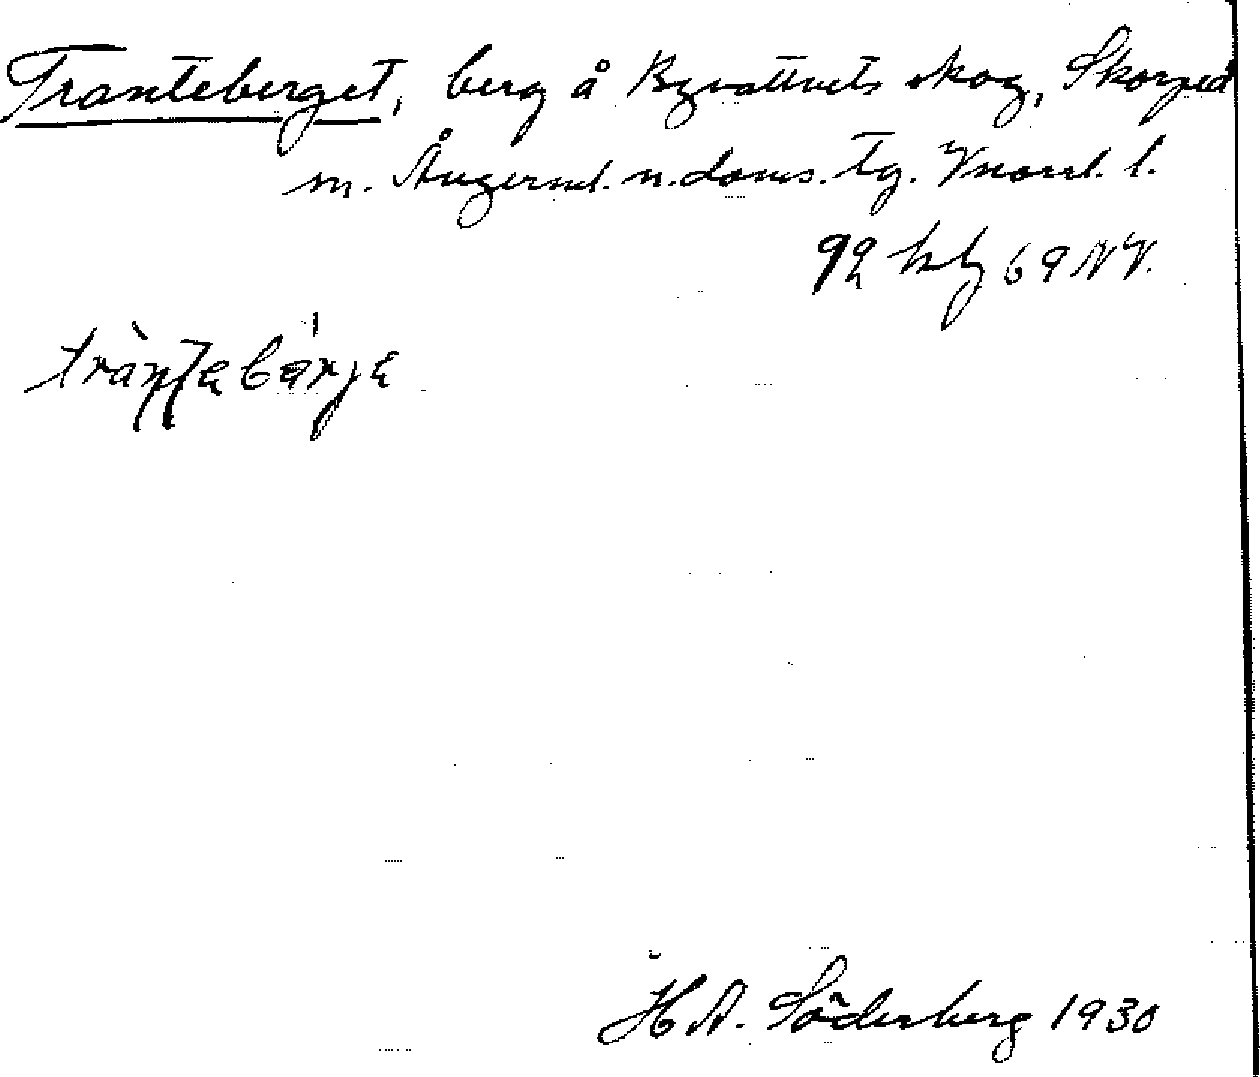 Tranteberget, berg å Byvattnets skog, Skorped
m. Ångerml. n. doms. tg. Vnorrl. l.
92 69 NV.
H A. Söderberg 1930